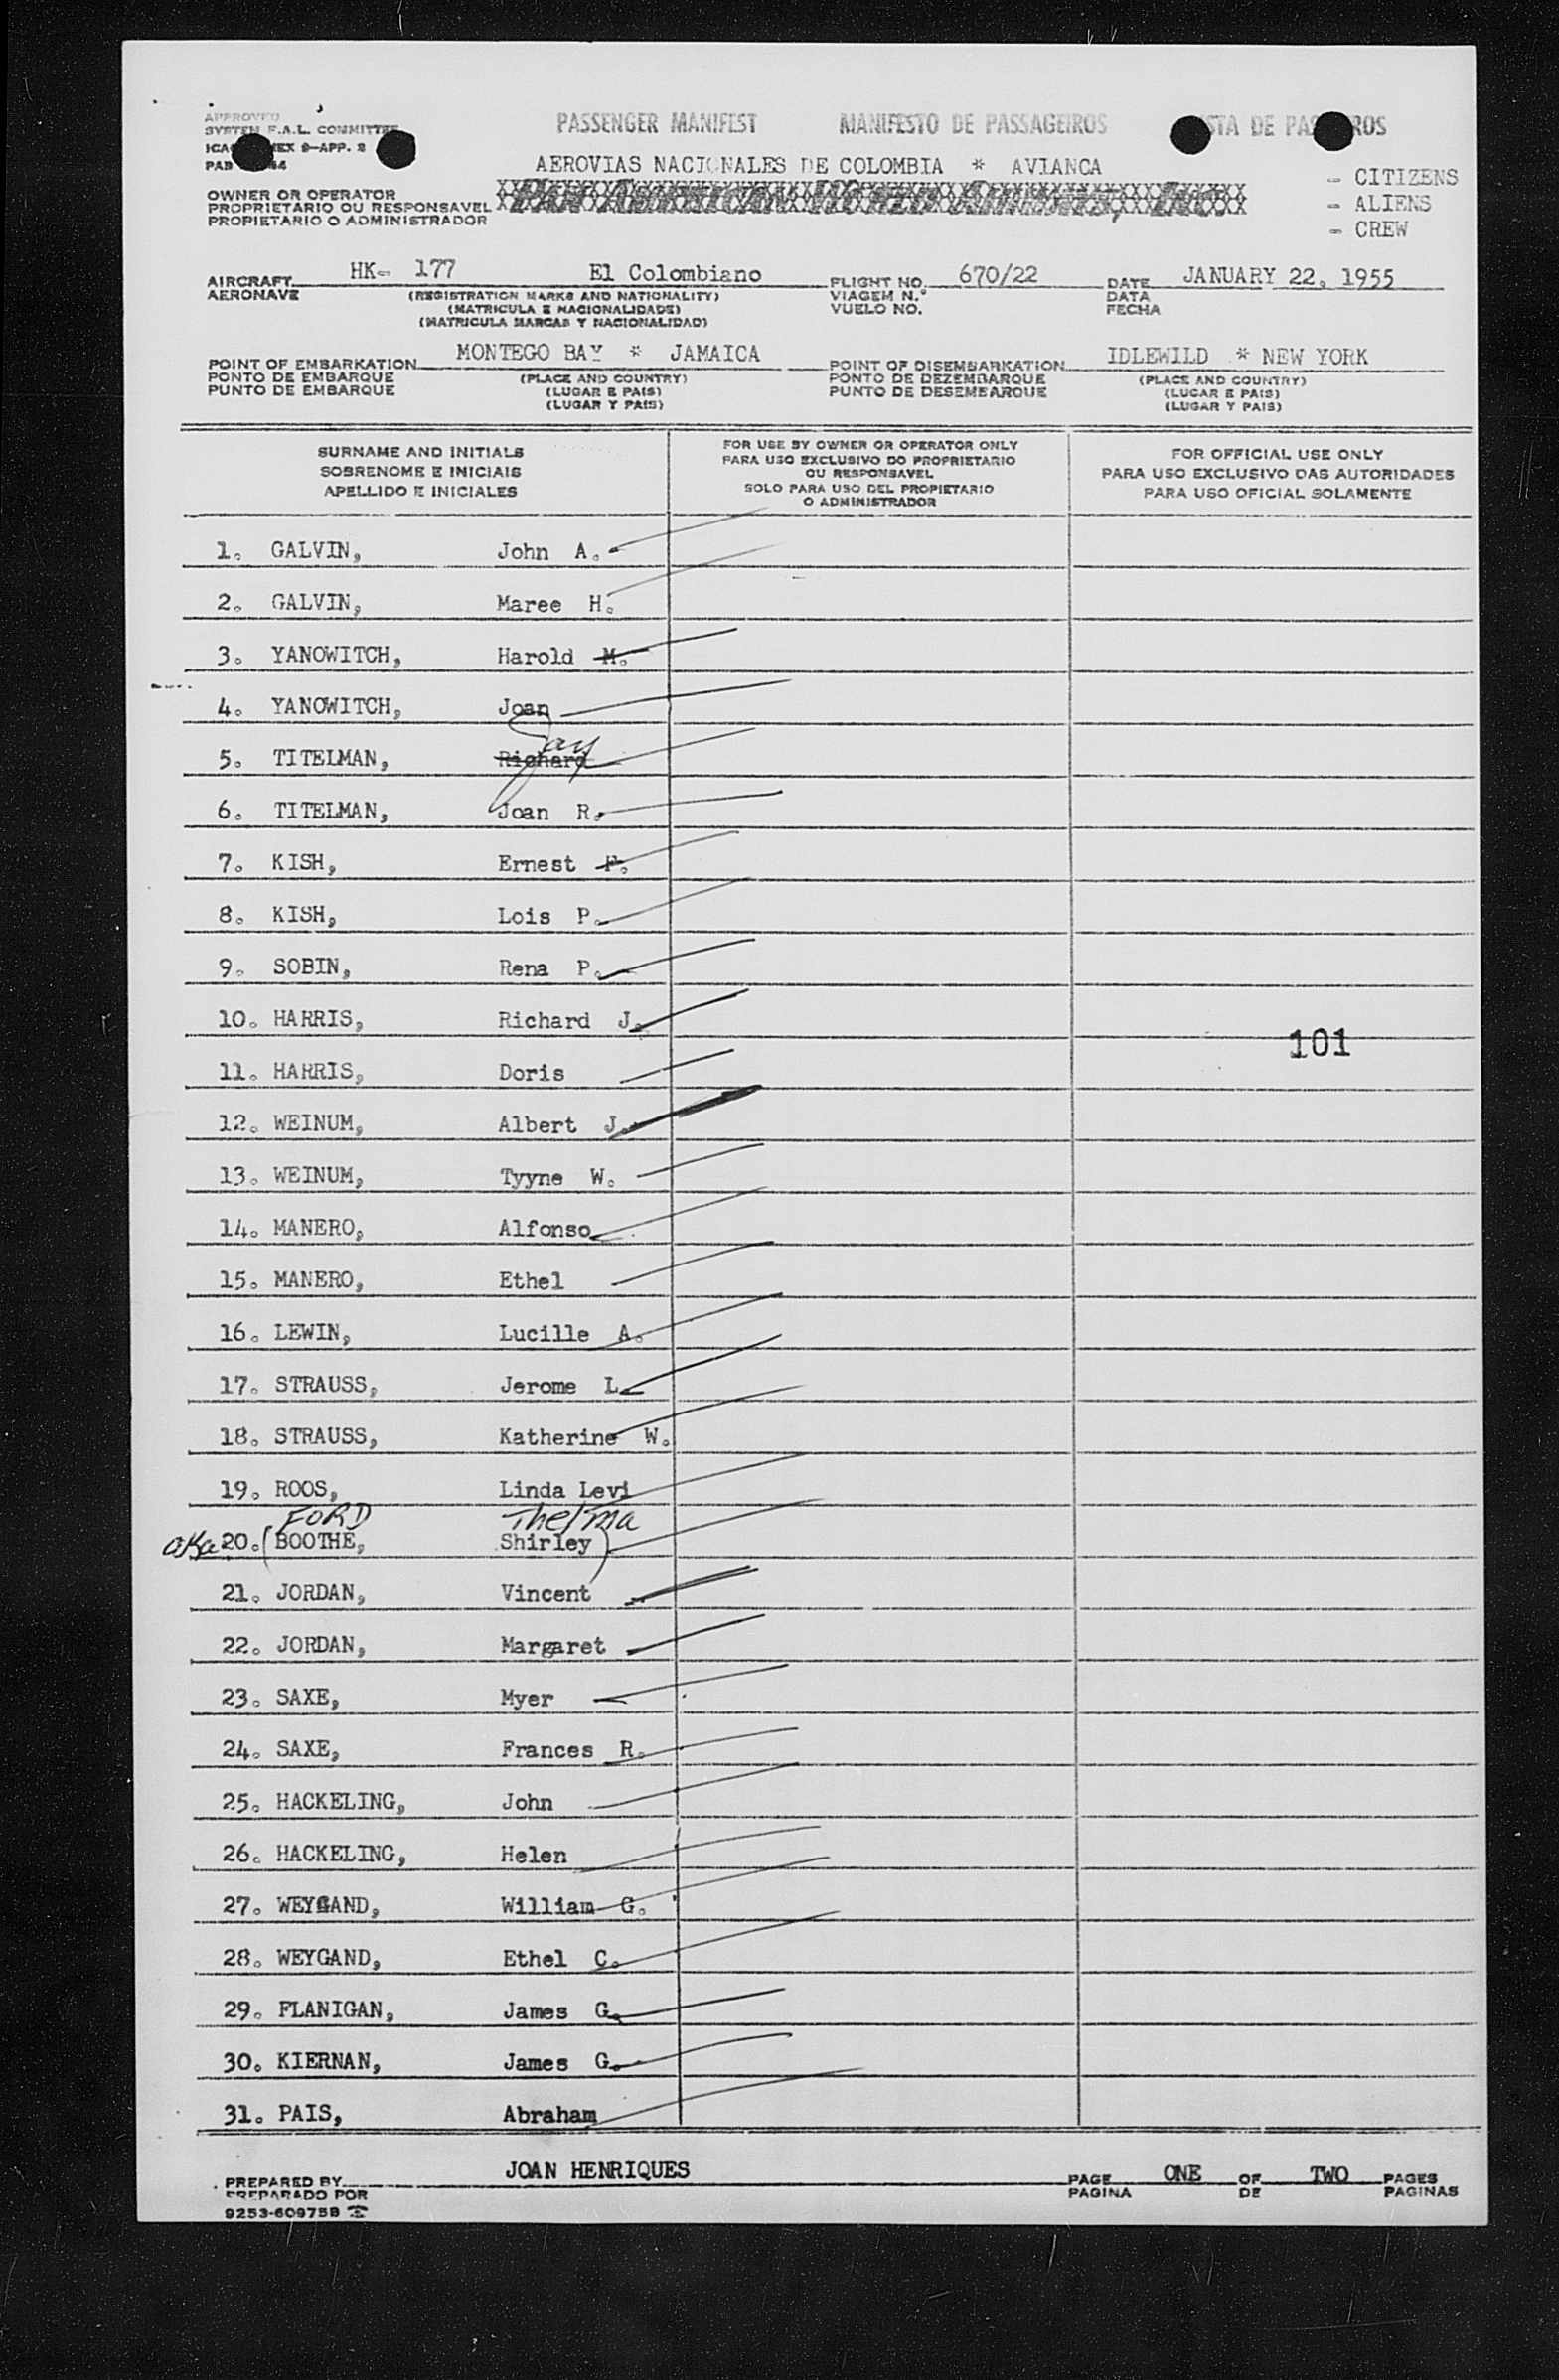 APPROVED
SYSTEM F.A.L. COMMITTEE
PASSENGER MANIFEST MANIFESTO DE PASSAGEIROS
AEROVIAS NACIONALES DE COLOMBIA * AVIANCA
PAN AMERICAN WORLD AIRWAYS, INC.
- CITIZENS
- ALIENS
- CREW
OWNER OR OPERATOR
PROPRIETARIO OU RESPONSAVEL
PROPIETARIO O ADMINISTRADOR
AIRCRAFT HK- 177 El Colombiano FLIGHT NO. 670/22 DATE JANUARY 22, 1955
AERONAVE (REGISTRATION MARKS AND NATIONALITY) VIAGEM N.º DATA
(MATRICULA E NACIONALIDADE) VUELO NO. FECHA
(MATRICULA MARCAS Y NACIONALIDAD)
POINT OF EMBARKATION MONTEGO BAY * JAMAICA POINT OF DISEMBARKATION IDLEWILD * NEW YORK
PONTO DE EMBARQUE (PLACE AND COUNTRY) PONTO DE DEZEMBARQUE (PLACE AND COUNTRY)
PUNTO DE EMBARQUE (LUGAR E PAIS) PUNTO DE DESEMBARQUE (LUGAR E PAIS)
(LUGAR Y PAIS) (LUGAR Y PAIS)
SURNAME AND INITIALS
SOBRENOME E INICIAIS
APELLIDO E INICIALES
FOR USE BY OWNER OR OPERATOR ONLY
PARA USO EXCLUSIVO DO PROPRIETARIO
OU RESPONSAVEL
SOLO PARA USO DEL PROPIETARIO
O ADMINISTRADOR
FOR OFFICIAL USE ONLY
PARA USO EXCLUSIVO DAS AUTORIDADES
PARA USO OFICIAL SOLAMENTE
1. GALVIN, John A.
2. GALVIN, Maree H.
3. YANOWITCH, Harold M.
4. YANOWITCH, Joan
Jay
5. TITELMAN, Richard
6. TITELMAN, Joan R.
7. KISH, Ernest F.
8. KISH, Lois P.
9. SOBIN, Rena P.
10. HARRIS, Richard J.
101
11. HARRIS, Doris
12. WEINUM, Albert J.
13. WEINUM, Tyyne W.
14. MANERO, Alfonso
15. MANERO, Ethel
16. LEWIN, Lucille A.
17. STRAUSS, Jerome L.
18. STRAUSS, Katherine W.
19. ROOS, Linda Levi
FORD Thelma
aka 20. (BOOTHE, Shirley)
21. JORDAN, Vincent
22. JORDAN, Margaret
23. SAXE, Myer
24. SAXE, Frances R.
25. HACKELING, John
26. HACKELING, Helen
27. WEYGAND, William G.
28. WEYGAND, Ethel C.
29. FLANIGAN, James G.
30. KIERNAN, James G.
31. PAIS, Abraham
PREPARED BY JOAN HENRIQUES PAGE ONE OF TWO PAGES
PREPARADO POR PAGINA DE PAGINAS
9253-609758